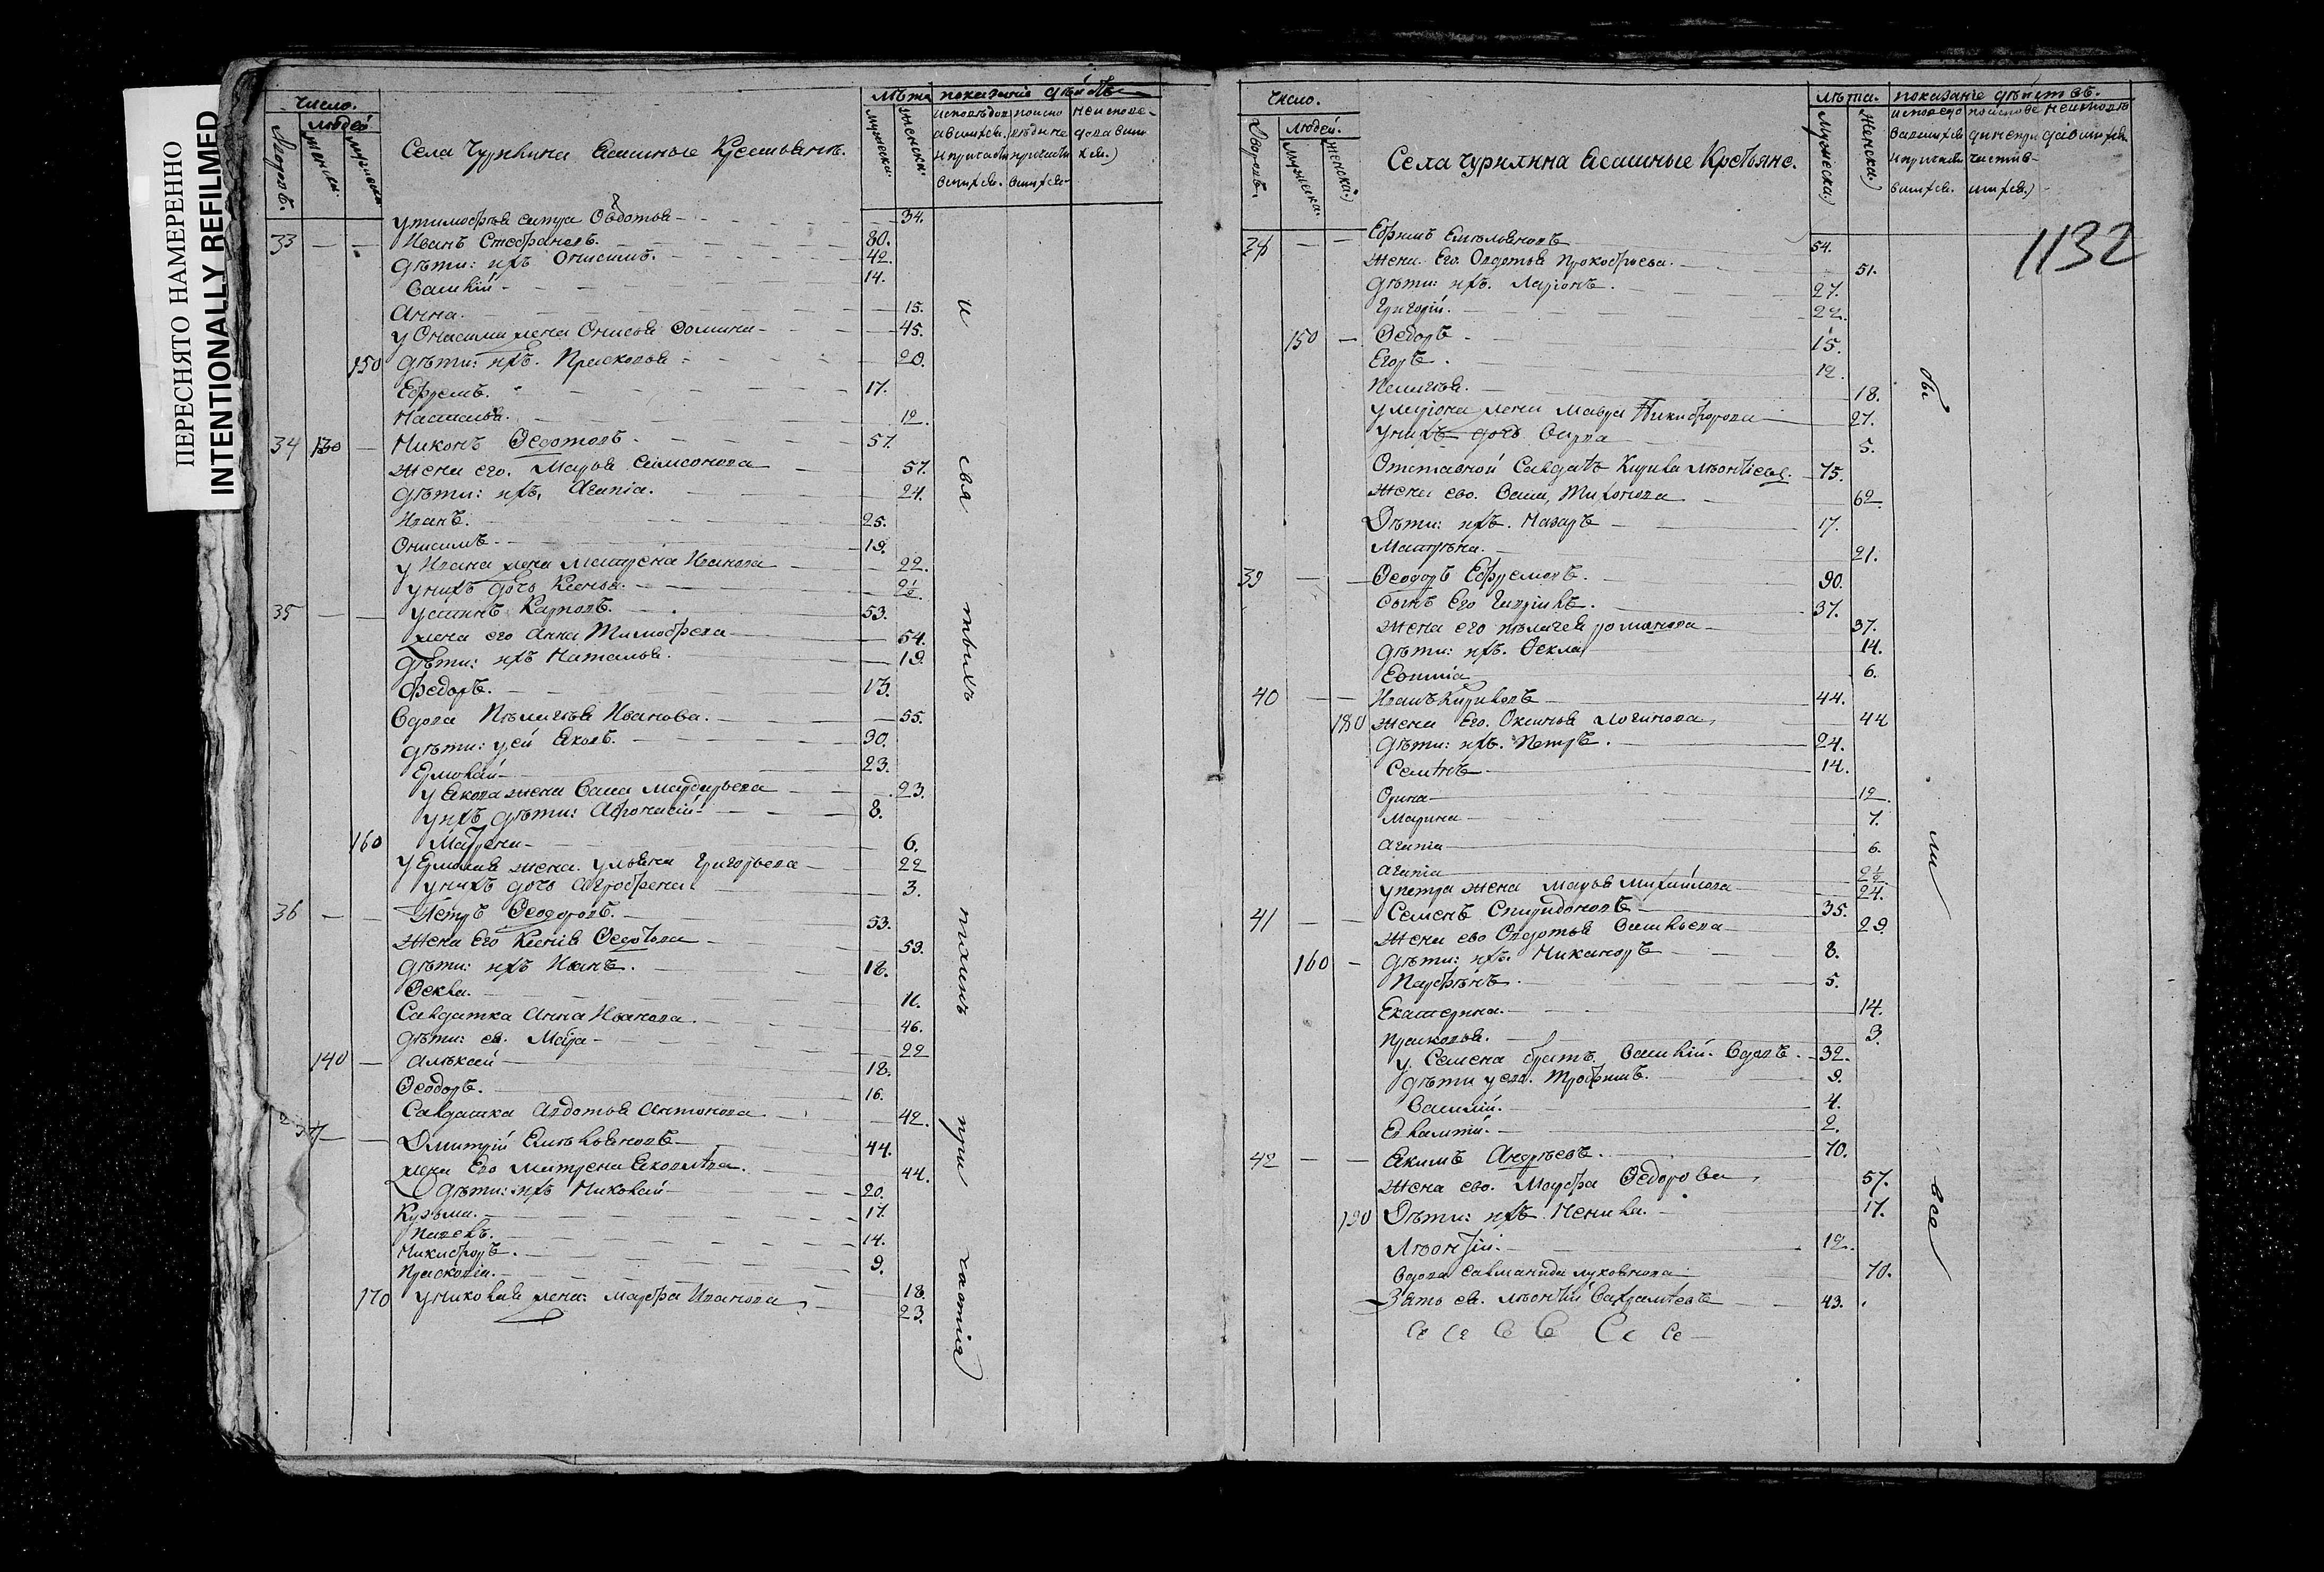 ПЕРЕСНЯТО НАМЕРЕННО
INTENTIONALLY REFILMED
число.
людей
лѣта показаніе дѣйств
мужеска.
женска.
Села Чурилина Ясашные Крестьянъ.
у тимофѣя сестра Овдотья 34.
33 Иванъ Стефановъ. 80.
дѣти: ихъ Онисимъ. 42.
Василій 14.
Анна. 15.
у Онисима жена Онисья Фомина 45.
150 дѣти: ихъ. Прасковья 20.
Ефремъ. 17.
Наталья. 12.
34 130 Никонъ Ѳедотовъ 57.
жена его. Марья Самсонова 57.
дѣти: ихъ, Агапія. 24.
Иванъ. 25.
Онисимъ. 19.
у Ивана жена Матрена Иванова 22.
у нихъ дочь Ксенья. 2½.
35 Устинъ Карповъ. 53.
жена его Анна Тимофѣева 54.
дѣти: ихъ Наталья. 19.
Федоръ. 13.
Вдова Пѣлагѣя Иванова. 55.
дѣти: у ей Яковъ. 30.
Ермолай 23.
у Якова жена Васса 23.
у ихъ дѣти: Афонасій 8.
160 Матрена 6.
у Ермолая жена. Ульяна Григорьева 22
у нихъ дочь Агрофена 3.
36 Петръ Ѳеодоровъ. 53.
жена Его Ксенія Ѳедотова 59.
дѣти: ихъ Иванъ. 18.
Ѳекла. 11.
Салдатка Анна Иванова. 46.
дѣти: ея. Мавра 22
140 Алѣксѣй 18.
Ѳеодоръ. 16.
Салдатка Авдотья Антонова 42.
37 Дмитрій Емельяновъ 44.
жена Его Матрена Яковлева. 44.
дѣти: ихъ Николай 20.
Кузьма. 17.
Павелъ. 14.
Никифоръ. 9.
Прасковія. 18
170 у Николая жена: Марфа Иванова 23.
и сья тѣихъ таинъ при частія
число.
людей.
дворовъ.
мужеска.
женска.
Села Чурилина Ясашные Крестьяне.
лѣта. показаніе дѣйствъ.
мужеска.
женска.
1132
Ефимъ Емельяновъ 54.
жена Его Овдотья Прокофьева. 51.
дѣти: ихъ. Ларіонъ. 27.
Григорій. 22.
150 Ѳедоръ 15.
Егоръ 12.
Пелагѣя. 18.
у Ларіона жена Мавра Никифорова 27.
у нихъ дочь Варва 5.
Отставной Салдатъ Кирила Лѣонтіевъ. 75.
жена ево. Васса, Тихонова 62.
Дѣти: ихъ. Назаръ 17.
Матрѣна. 21.
39 Ѳеодоръ Ефремовъ. 90.
Сынъ Его Гаврилъ. 37.
жена его пѣлагея романова 37.
дѣти: ихъ. Ѳекла 14.
Евѳимія 6.
40 Иванъ Кириловъ 44.
180 жена Его. Оксинья Логинова, 44
дѣти: ихъ. Петръ. 24.
Семѣнъ 14.
Орина 12.
Марина 7.
агапія 6.
агапія 2½
у петра жена Марья Михайлова 24.
41 Семенъ Спиридоновъ 35.
жена ево Овдотья Васильева 29.
160 дѣти: ихъ. Никаноръ 8.
Парфѣнъ. 5.
Екатерина. 14.
прасковья. 3.
у Семена братъ Василій. Вдовъ. 32.
дѣти у ево. Трофимъ. 9.
Василій. 4.
Евламтій. 2.
42 Якимъ Андрѣевъ. 70.
жена ево. Марфа Ѳедорова 57.
190 Дѣти: ихъ Ненила. 17.
Лѣонтій. 12.
Вдова Савманида луковнова 70.
Зять ея. лѣонтій 43.
бы ли все